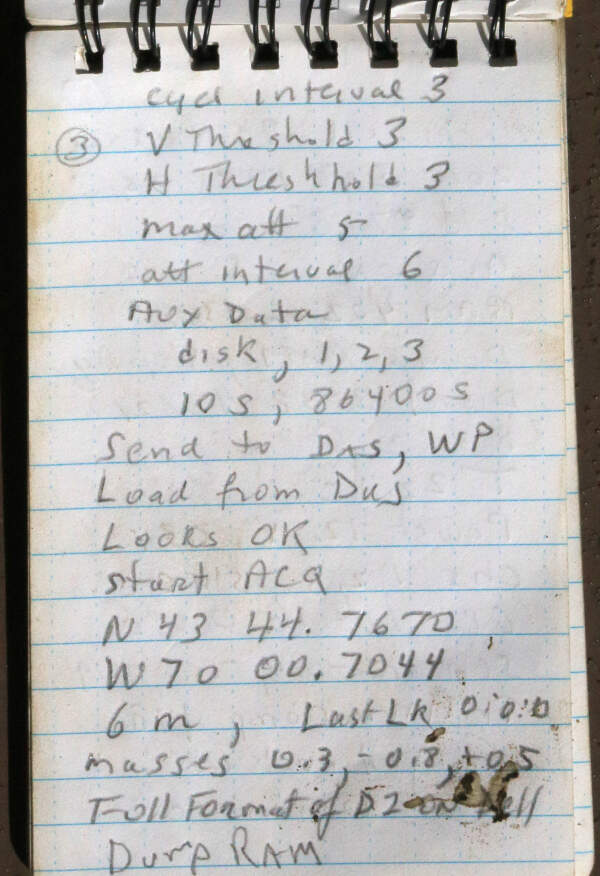 cycl interval 3
③ V Threshold 3
H Threshhold 3
max att 5
att interval 6
Aux Data
disk, 1, 2, 3
10 s, 86400 s
Send to DAS, WP
Load from Das
Looks OK
start ACQ
N 43 44.7670
W 70 00.7044
6 m, Last Lk 0:0:0
masses 0.3, -0.8, +0.5
Full Format of D2 on
Dump RAM